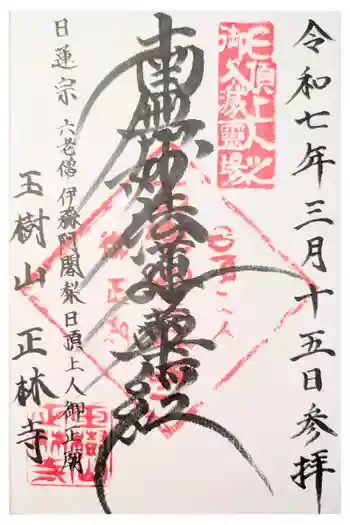 令和七年三月十五日参拝
日頂上人之
御入滅霊場
南無妙法蓮華経
日蓮宗 六老僧 伊豫阿闍梨日頂上人御正廟
玉樹山 正林寺